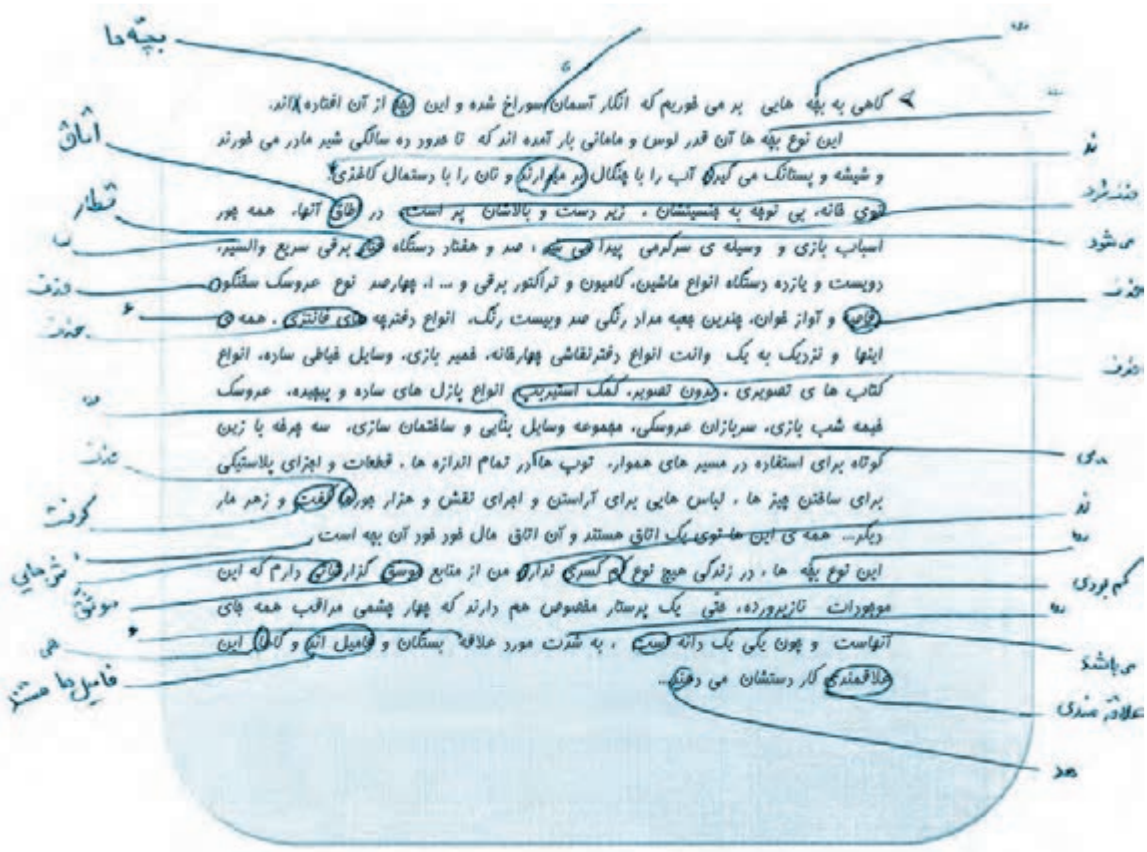 گاهی به بچه هایی بر می خوریم که انگار آسمان سوراخ شده و این بچه از آن افتاده اند.
این نوع بچه ها آن قدر لوس و مامانی بار آمده اند که تا حدود ده سالگی شیر مادر می خورند
و شیشه و پستانک می گیرد آب را با چنگال بر میدارند و نان را با دستمال کاغذی.
توی خانه، بی توجه به جنسیتشان، زیر دست و بالاشان پر است، در اطاق آنها، همه جور
اسباب بازی و وسیله ی سرگرمی پیدا می شد، صد و هفتاد دستگاه برقی سریع والسیر،
دویست و یازده دستگاه انواع ماشین، کامیون و تراکتور برقی و ... ، چهارصد نوع عروسک سخنگو
و آواز خوان، چندین جعبه مداد رنگی صد وبیست رنگ، انواع دفترچه های فانتزی، همه ی
اینها و نزدیک به یک وانت انواع دفترنقاشی چهارخانه، خمیر بازی، وسایل خیاطی ساده، انواع
کتاب ها ی تصویری، بدون تصویر، کمک استیریپ انواع پازل های ساده و پیچیده، عروسک
خیمه شب بازی، سربازان عروسکی، مجموعه وسایل بنایی و ساختمان سازی، سه چرخه با زین
کوتاه برای استفاده در مسیر های هموار، توپ ها در تمام اندازه ها، قطعات و اجزای پلاستیکی
برای ساختن چیز ها، لباس هایی برای آراستن و اجرای نقش و هزار جوره کفت و زهر مار
دیگر... همه ی این ها توی یک اتاق هستند و آن اتاق مال خود خود آن بچه است.
این نوع بچه ها، در زندگی هیچ نوع کم کسری ندارد من از منابع موسق گزارشاتی دارم که این
موجودات نازپرورده، حتی یک پرستار مخصوص هم دارند که چهار چشمی مراقب همه جای
آنهاست و چون یکی یک دانه است، به شدت مورد علاقه بستگان و فامیل اند و کاملا این
علاقمندی کار دستشان می دهند...
بچه ها
اتاق
قطار
حذف
حذف
حذف
گرفت
فامیل ها هستند
ند
می شود
حذف
حذف
ند
کم بودی
می باشد
علاقه مندی
هد